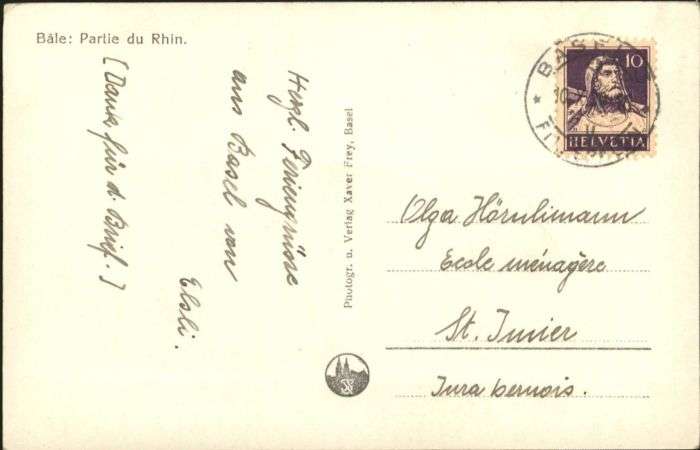 Bâle: Partie du Rhin.
[Dank für d. Brief.]
Herzl. Feriengrüsse
aus Basel von
Elsli.
Photogr. u. Verlag Xaver Frey, Basel
BASEL
10
HELVETIA
Olga Hörnlimann
Ecole ménagère
St. Imier
Jura bernois.